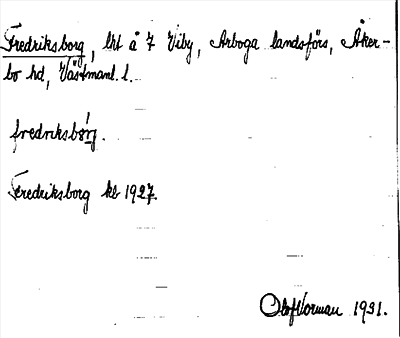 Fredriksborg, lht å 7 Viby, Arboga landsförs, Åker-
bo hd, Västmanl. l.
fredriksbórj.
Feredriksborg kb 1927.
Olof Norman 1931.